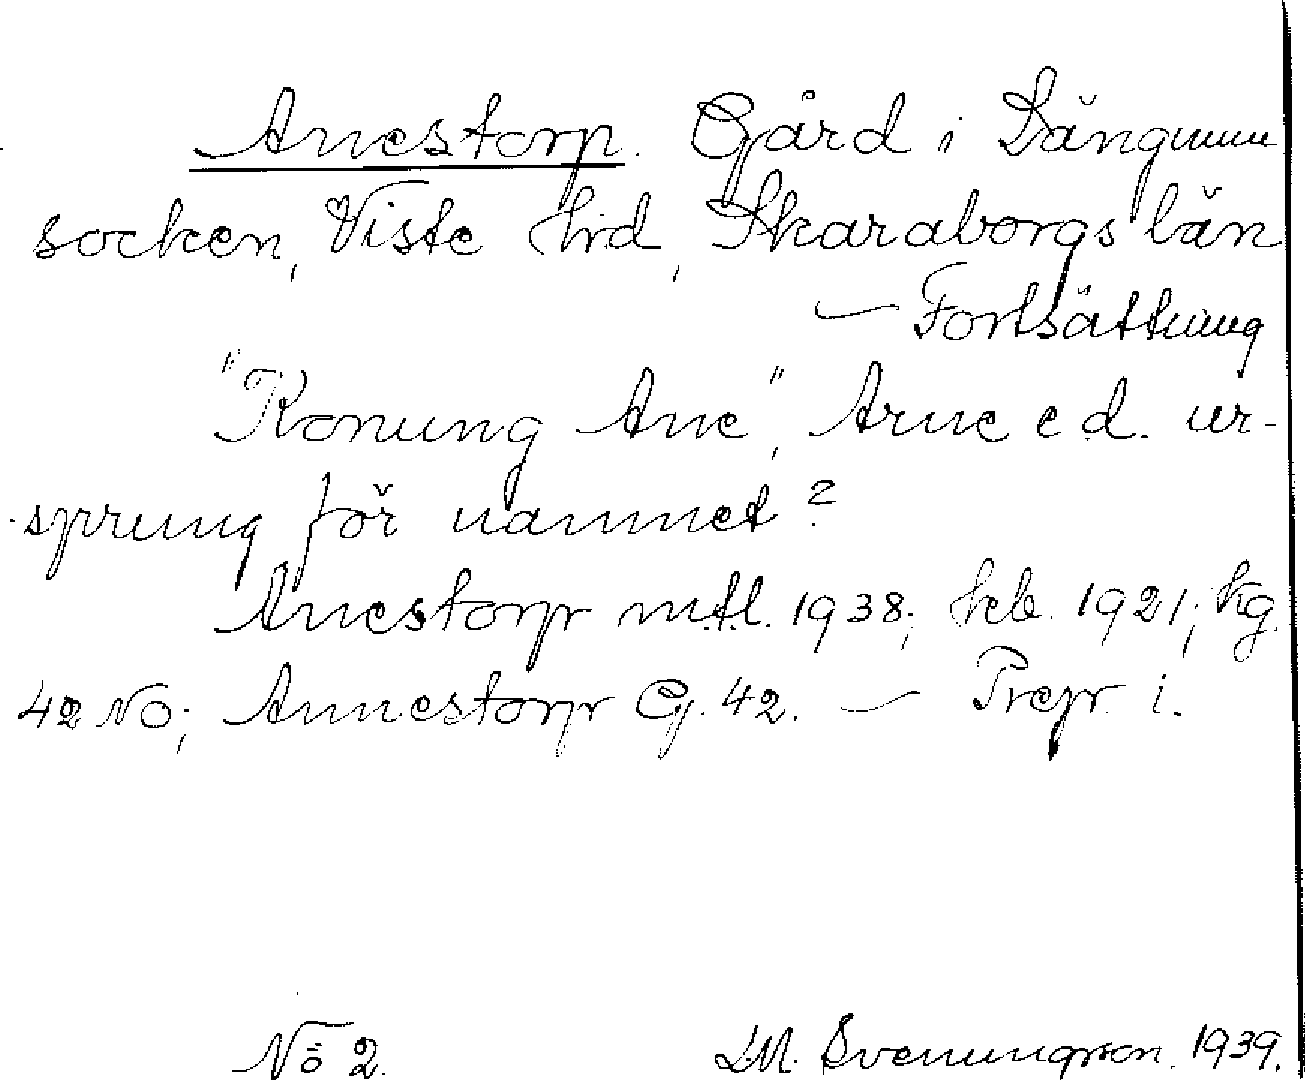 Anestorp. Gård i Längnum
socken, Viste hrd, Skaraborgs län
— Fortsättning
"Konung Ane", Arne e d. ur-
sprung för namnet?
Anestorp mtl. 1938; kb. 1921; kg.
42 NO; Annestorp G. 42. — Prep i.
No 2. L.M. Svenungson. 1939.